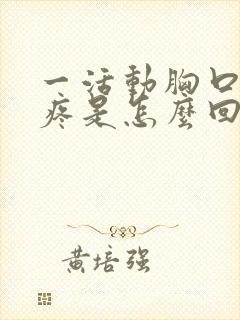 一活動胸口
疼是怎麼回
黃培强